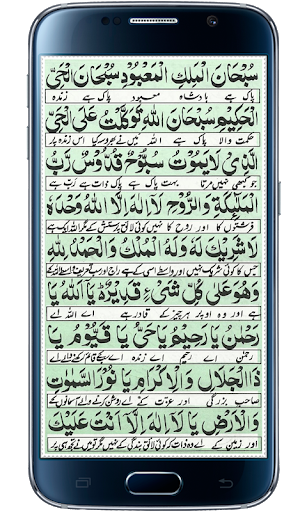 سُبْحَانَ الْمَلِكِ الْمَعْبُوْدِ سُبْحَانَ الْحَيِّ
پاک ہے بادشاہ معبود پاک ہے زندہ
الْحَكِيْمِ سُبْحَانَ اللهِ تَوَكَّلْتُ عَلَى الْحَيِّ
حکمت والا پاک ہے اللہ میں نے بھروسہ کیا اس پر
الَّذِيْ لَا يَمُوْتُ سُبُّوْحٌ قُدُّوْسٌ رَبُّ
جو کبھی نہیں مرتا بہت پاک ہے پاک ذات ہے رب ہے
الْمَلٰٓئِكَةِ وَالرُّوْحِ لَا اِلٰهَ اِلَّا اللهُ وَحْدَهٗ
فرشتوں کا اور روح کا نہیں کوئی لائق پرستش کے مگر اللہ ایک ہے
لَا شَرِيْكَ لَهٗ وَلَهُ الْمُلْكُ وَلَهُ الْحَمْدُ
جس کا کوئی شریک نہیں اور واسطے اسی کے ہے راج اور سب تعریف
وَهُوَ عَلٰى كُلِّ شَيْءٍ قَدِيْرٌ يَا اَللهُ يَا
ہے اور وہ اوپر ہر چیز کے قادر ہے اے اللہ اے
رَحْمٰنُ يَا رَحِيْمُ يَا حَيُّ يَا قَيُّوْمُ يَا
رحمٰن اے رحیم اے زندہ اے قائم رکھنے والے اے
ذَا الْجَلَالِ وَالْاِكْرَامِ يَا نُوْرَ السَّمٰوٰتِ
صاحب بزرگی اور عزت کے اے روشن کرنے والے آسمانوں کے
وَالْاَرْضِ يَا لَا اِلٰهَ اِلَّا اَنْتَ عَلَيْكَ
اور زمین کے اے وہ ذات کہ کوئی لائق بندگی کے نہیں مگر تو میں نے تجھ ہی پر